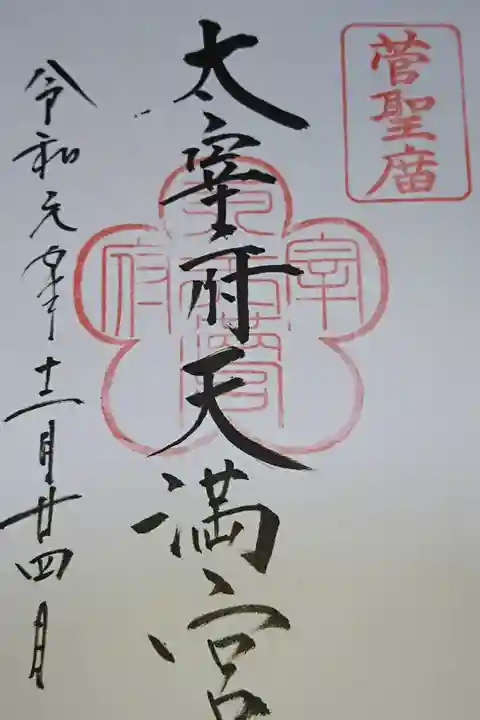 菅聖庿
太宰府天満宮
令和元年十二月廿四日